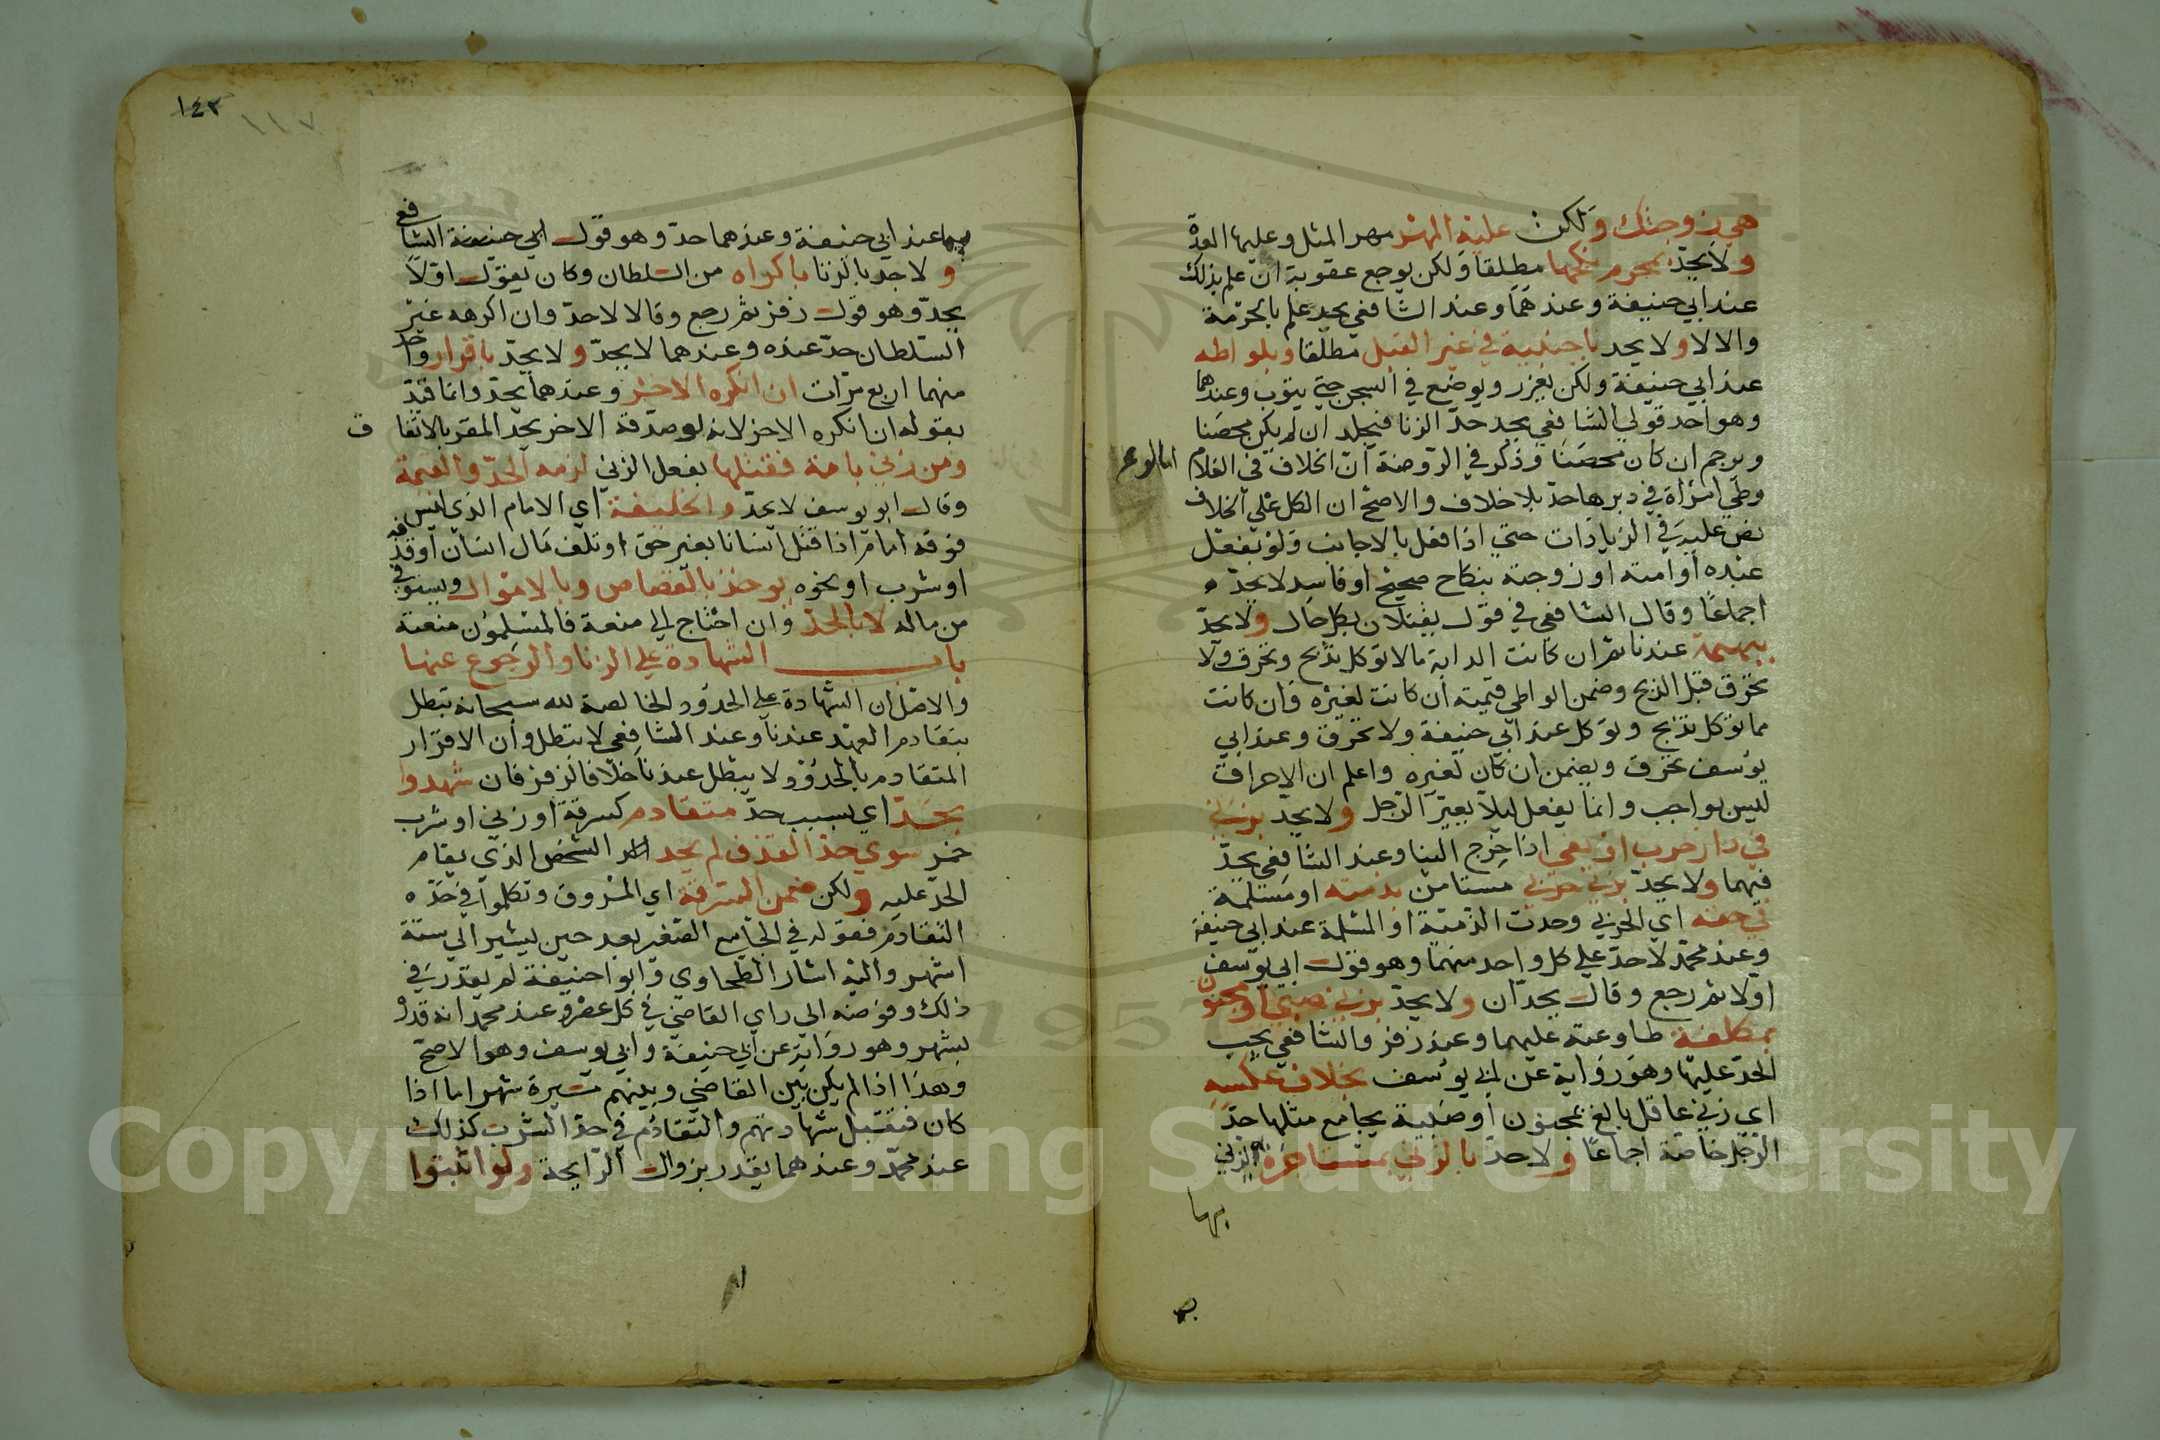 هي زوجتك ولكن عليه المهر مهر المثل وعليها العدة
ولا يحد بمحرم نكحها مطلقا ولكن يوجع عقوبة ان علم بذلك
عند ابي حنيفة وعندهما وعند الشافعي يحد علم بالحرمة
والا لا ولا يحد باجنبية في غير القبل مطلقا وبلواطه
عند ابي حنيفة ولكن يعزر ويوضع في السجن حتى يتوب وعندهما
وهو احد قولي الشافعي يحد حد الزنا فيجلد ان لم يكن محصنا
ويرجم ان كان محصنا وذكر في الروضة ان الخلاف في الغلام
وطي امراة في دبرها حد بلا خلاف والاصح ان الكل على الخلاف
نص عليه في الزيادات حتى اذا فعل بالاجانب ولو بفعل
عبده او امته او زوجته بنكاح صحيح او فاسد لا يحد
اجماعا وقال الشافعي في قول يقتلان بكل حال ولا يحد
ببهيمة عندنا ثم ان كانت الدابة مما لا توكل تذبح وتحرق ولا
تحرق قبل الذبح وضمن الواطي قيمته ان كانت لغيره وان كانت
مما توكل تذبح وتوكل عند ابي حنيفة ولا تحرق وعند ابي
يوسف تحرق ويضمن ان كان لغيره واعلم ان الاحراق
ليس بواجب وانما يفعل ليلا يعير الرجل ولا يحد بزنى
في دار حرب او بغي اذا خرج الينا وعند الشافعي يحد
فيهما ولا يحد بزنى حربي مستامن بذمية او مسلمة
في حقه اي الحربي وحدت الذمية او المسلمة عند ابي حنيفة
وعند محمد لا حد على كل واحد منهما وهو قول ابي يوسف
اولا ثم رجع وقال يحدان ولا يحد بزنى صبي او مجنون
بمكلفة طاوعته عليهما وعند زفر والشافعي يجب
الحد عليها وهو رواية عن ابي يوسف بخلاف عكسه
اي زنى عاقل بالغ بمجنون او صبية يجامع مثلها حد
الرجل خاصة اجماعا ولا حد بالزنى بمستاجرة لزنى
بها
بها عند ابي حنيفة وعندهما حد وهو قول ابي حنيفة الشافعي
ولا حد بالزنا باكراه من السلطان وكان يقول اولا
يحد وهو قول زفر ثم رجع وقالا لا حد وان اكرهه غير
السلطان حد عنده وعندهما لا يحد ولا يحد باقرار واحد
منهما اربع مرات ان انكره الاخر وعندهما يحد وانما قيد
بقوله ان انكره الاخر لانه لو صدقه الاخر يحد المقر بالاتفا ق
ومن زنى بامة فقتلها بفعل الزنى لزمه الحد والقيمة
وقال ابو يوسف لا يحد والخليفة اي الامام الذي ليس
فوقه امام اذا قتل انسانا بغير حق او تلف مال انسان او قذفه
او شرب او نحوه يوخذ بالقصاص وبالاموال ويستوفي
من ماله لا بالحد وان احتاج الى منعة فالمسلمون منعته
باب الشهادة على الزنا والرجوع عنها
والاصل ان الشهادة على الحدود الخالصة لله سبحانه تبطل
بتقادم العهد عندنا وعند الشافعي لا تبطل وان الاقرار
المتقادم بالحدود لا يبطل عندنا خلافا لزفر فان شهدوا
بحد اي بسبب حد متقادم كسرقة او زنى او شرب
خمر سوى حد القذف لم يحد الشخص الذي يقام
الحد عليه ولكن ضمن السرقة اي المسروق وتكلموا في حد
التقادم فقوله في الجامع الصغير بعد حين يشير الى ستة
اشهر واليه اشار الطحاوي وابو احنيفة لم يقدر في
ذلك وفوضه الى راي القاضي في كل عصر وعند محمد انه قدر
بشهر وهو رواية عن ابي حنيفة وابي يوسف وهو الاصح
وهذا اذا لم يكن بين القاضي وبينهم مسيرة شهر اما اذا
كان فتقبل شهادتهم والتقادم في حد الشرب كذلك
عند محمد وعندهما يقدر بزوال الرايحة ولو اثبتوا
١٤٢
١١٧
1957
Copyright © King Saud University